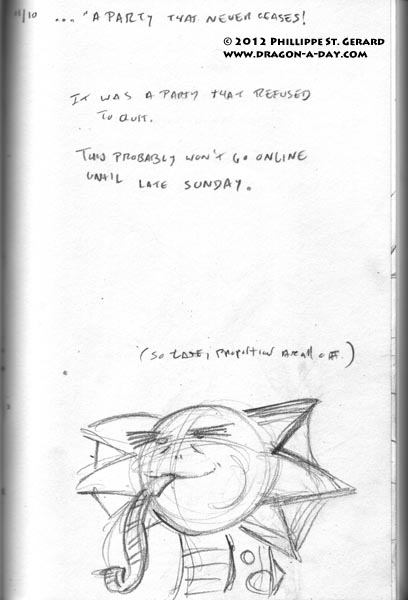 11/10 ... "A PARTY THAT NEVER CEASES!
© 2012 PHILLIPPE ST. GERARD
WWW.DRAGON-A-DAY.COM
IT WAS A PARTY THAT REFUSED
TO QUIT.
THIS PROBABLY WON'T GO ONLINE
UNTIL LATE SUNDAY.
(SO LATE, PROPORTION ARE all OFF.)